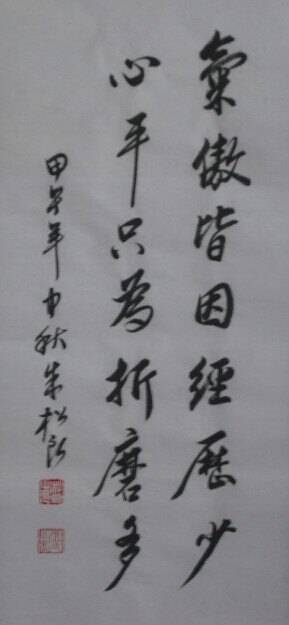 氣傲皆因經歷少
心平只為折磨多
甲午年中秋朱松